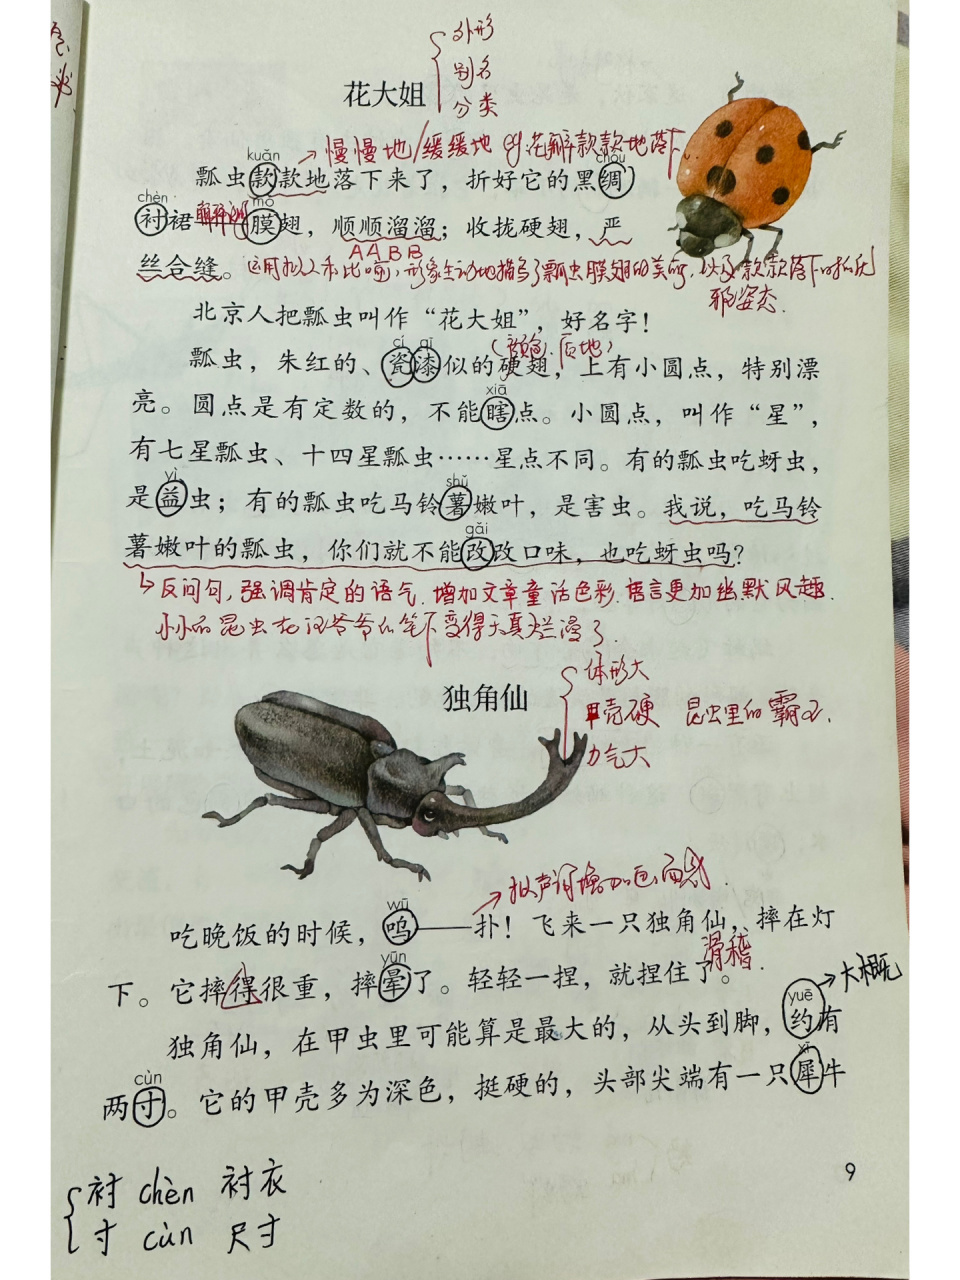 外形
别名
花大姐
分类
→慢慢地/缓缓地 例花瓣款款地落下
kuǎn chóu
瓢虫款款地落下来了，折好它的黑绸
chèn mó
衬裙——膜翅，顺顺溜溜；收拢硬翅，严
AABB
丝合缝。运用拟人和比喻，形象生动地描写了瓢虫膜翅的美丽，以及款款落下时的
姿态.
北京人把瓢虫叫作“花大姐”，好名字！
cí qī
（颜色.质地）
瓢虫，朱红的、瓷漆似的硬翅，上有小圆点，特别漂
xiā
亮。圆点是有定数的，不能瞎点。小圆点，叫作“星”，
有七星瓢虫、十四星瓢虫……星点不同。有的瓢虫吃蚜虫，
yì shǔ
是益虫；有的瓢虫吃马铃薯嫩叶，是害虫。我说，吃马铃
gǎi
薯嫩叶的瓢虫，你们就不能改改口味，也吃蚜虫吗？
反问句,强调肯定的语气.增加文章童话色彩.语言更加幽默风趣.
小小的昆虫在汪爷爷的笔下变得天真烂漫了
体形大
独角仙
甲壳硬 昆虫里的霸王.
力气大
→拟声词增加画面感.
wū
吃晚饭的时候，呜——扑！飞来一只独角仙，摔在灯
滑稽.
yūn
下。它摔得很重，摔晕了。轻轻一捏，就捏住了。
→大概
yuē
独角仙，在甲虫里可能算是最大的，从头到脚，约有
cùn xī
两寸。它的甲壳多为深色，挺硬的，头部尖端有一只犀牛
9
衬 chèn 衬衣
寸 cùn 尺寸